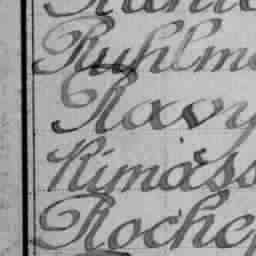 Ruhlm
Ravy
Kimass
Roche